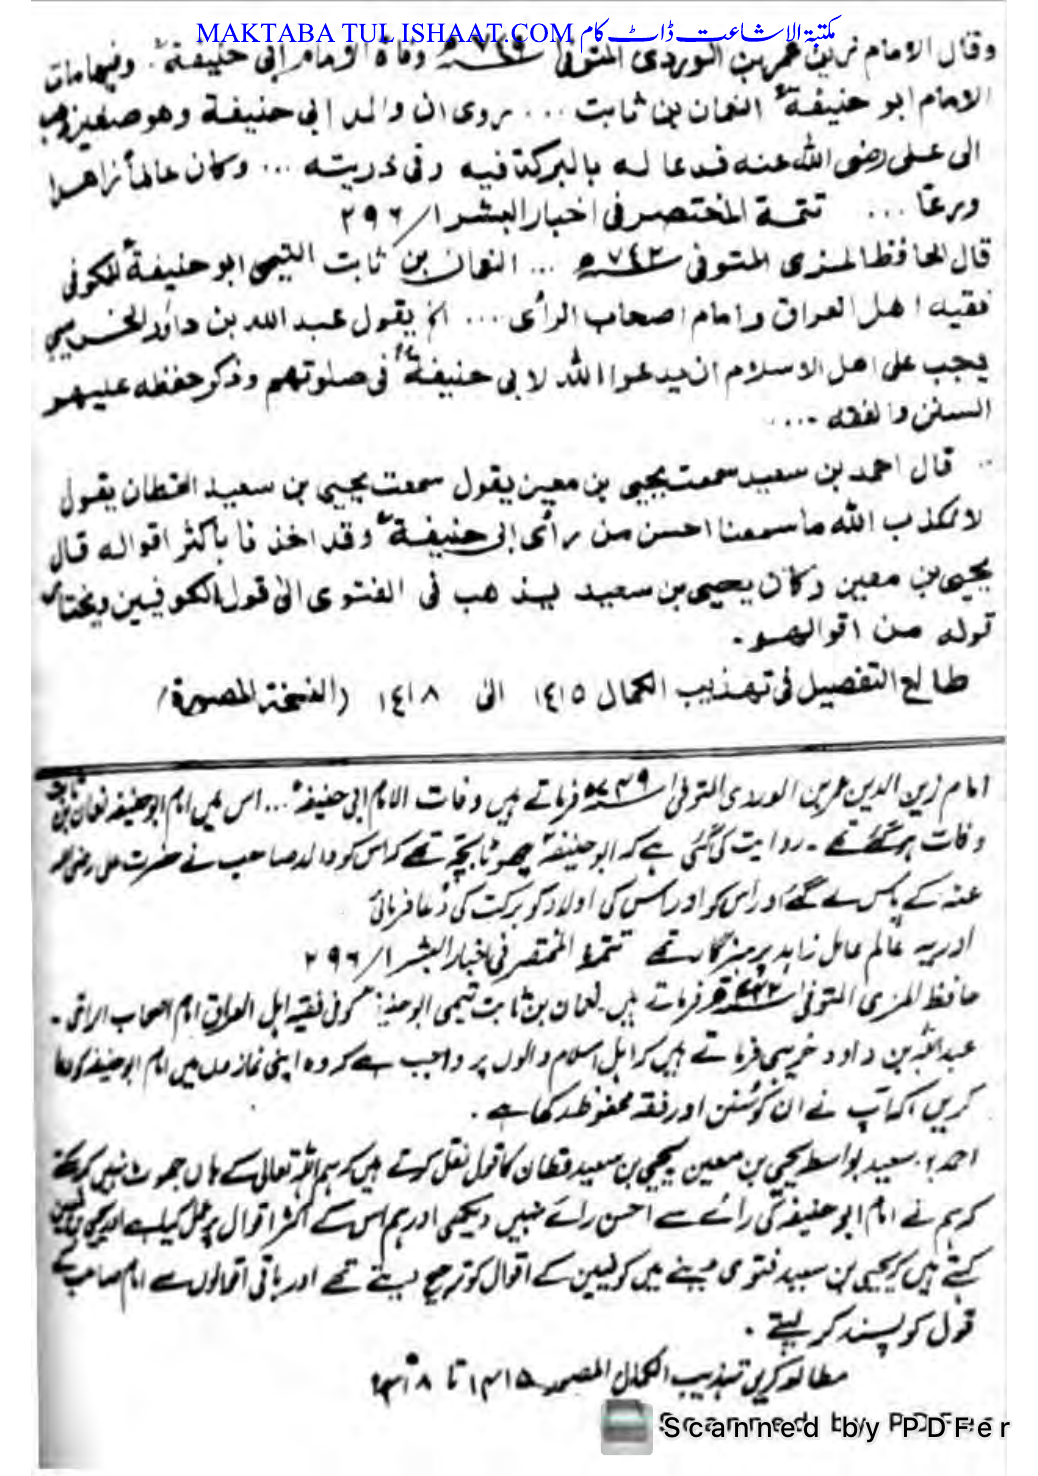 MAKTABA TUL ISHAAT.COM مکتبۃ الاشاعت ڈاٹ کام
وقال الامام زين عمر بن الوردی المتوفی ۷۴۹ھ وفاة الامام ابی حنيفة وفيها مات
الامام ابو حنيفة النعمان بن ثابت ... روی ان والد ابی حنيفة وهو صغير ذهب
الی علی رضی الله عنه فدعا له بالبركة فيه وفی ذريته ... وكان عالماً زاهدا
ورعًا ... تتمة المختصر فی اخبار البشر ۱/۲۹۶
قال الحافظ المزی المتوفی ۷۴۲ھ ... النعمان بن ثابت التيمی ابو حنيفة الكوفی
فقيه اهل العراق وامام اصحاب الرأی ... الخ يقول عبد الله بن داود الخريبی
يجب علی اهل الاسلام ان يدعوا الله لابی حنيفة فی صلوتهم وذكر حفظه عليهم
السنن والفقه ....
قال احمد بن سعيد سمعت يحيی بن معين يقول سمعت يحيی بن سعيد القطان يقول
لا نكذب الله ما سمعنا احسن من رأی ابی حنيفة وقد اخذنا باكثر اقواله قال
يحيی بن معين وكان يحيی بن سعيد يذهب فی الفتوی الی قول الكوفيين ويختار
قوله من اقوالهم ۔
طالع التفصيل فی تهذيب الكمال ۱٤۱۵ الی ۱٤۱۸ (النسخة المصورة/
امام زین الدین عمر بن الوردی المتوفی ۷۴۹ھ فرماتے ہیں وفات الامام ابی حنیفہ ... اس میں امام ابو حنیفہ نعمان بن ثابت
وفات ہو گئے تھے ۔ روایت کی گئی ہے کہ ابو حنیفہ چھوٹا بچہ تھے کہ اس کو والد صاحب نے حضرت علی رضی اللہ
عنہ کے پاس لے گئے اور اس کو اور اس کی اولاد کو برکت کی دُعا فرمائی
اور یہ عالم عامل زاہد پرہیزگار تھے تتمۃ المختصر فی اخبار البشر ۱/۲۹۶
حافظ المزی المتوفی ۷۴۲ھ فرماتے ہیں نعمان بن ثابت تیمی ابو حنیفہ کوفی فقیہ اہل العراق امام اصحاب الرائی ۔
عبداللہ بن داود خریبی فرماتے ہیں کہ اہل اسلام والوں پر واجب ہے کہ وہ اپنی نمازوں میں امام ابو حنیفہ کو دعا
کریں کہ آپ نے ان کو سُنن اور فقہ محفوظ رکھا ہے ۔
احمد بن سعید بواسطہ یحیی بن معین یحیی بن سعید قطان کا قول نقل کرتے ہیں کہ ہم اللہ تعالی کے ہاں جھوٹ نہیں کہتے
کہ ہم نے امام ابو حنیفہ کی رائے سے احسن رائے نہیں دیکھی اور ہم اس کے اکثر اقوال پر عمل کیا ہے اور یحیی بن معین
کہتے ہیں کہ یحیی بن سعید فتوی دینے میں کوفیین کے اقوال کو ترجیح دیتے تھے اور باقی اقوالوں سے امام صاحب کے
قول کو پسند کر لیتے ۔
مطالعہ کریں تہذیب الکمال المصور ۱۴۱۵ تا ۱۴۱۸
Scanned by PDFer